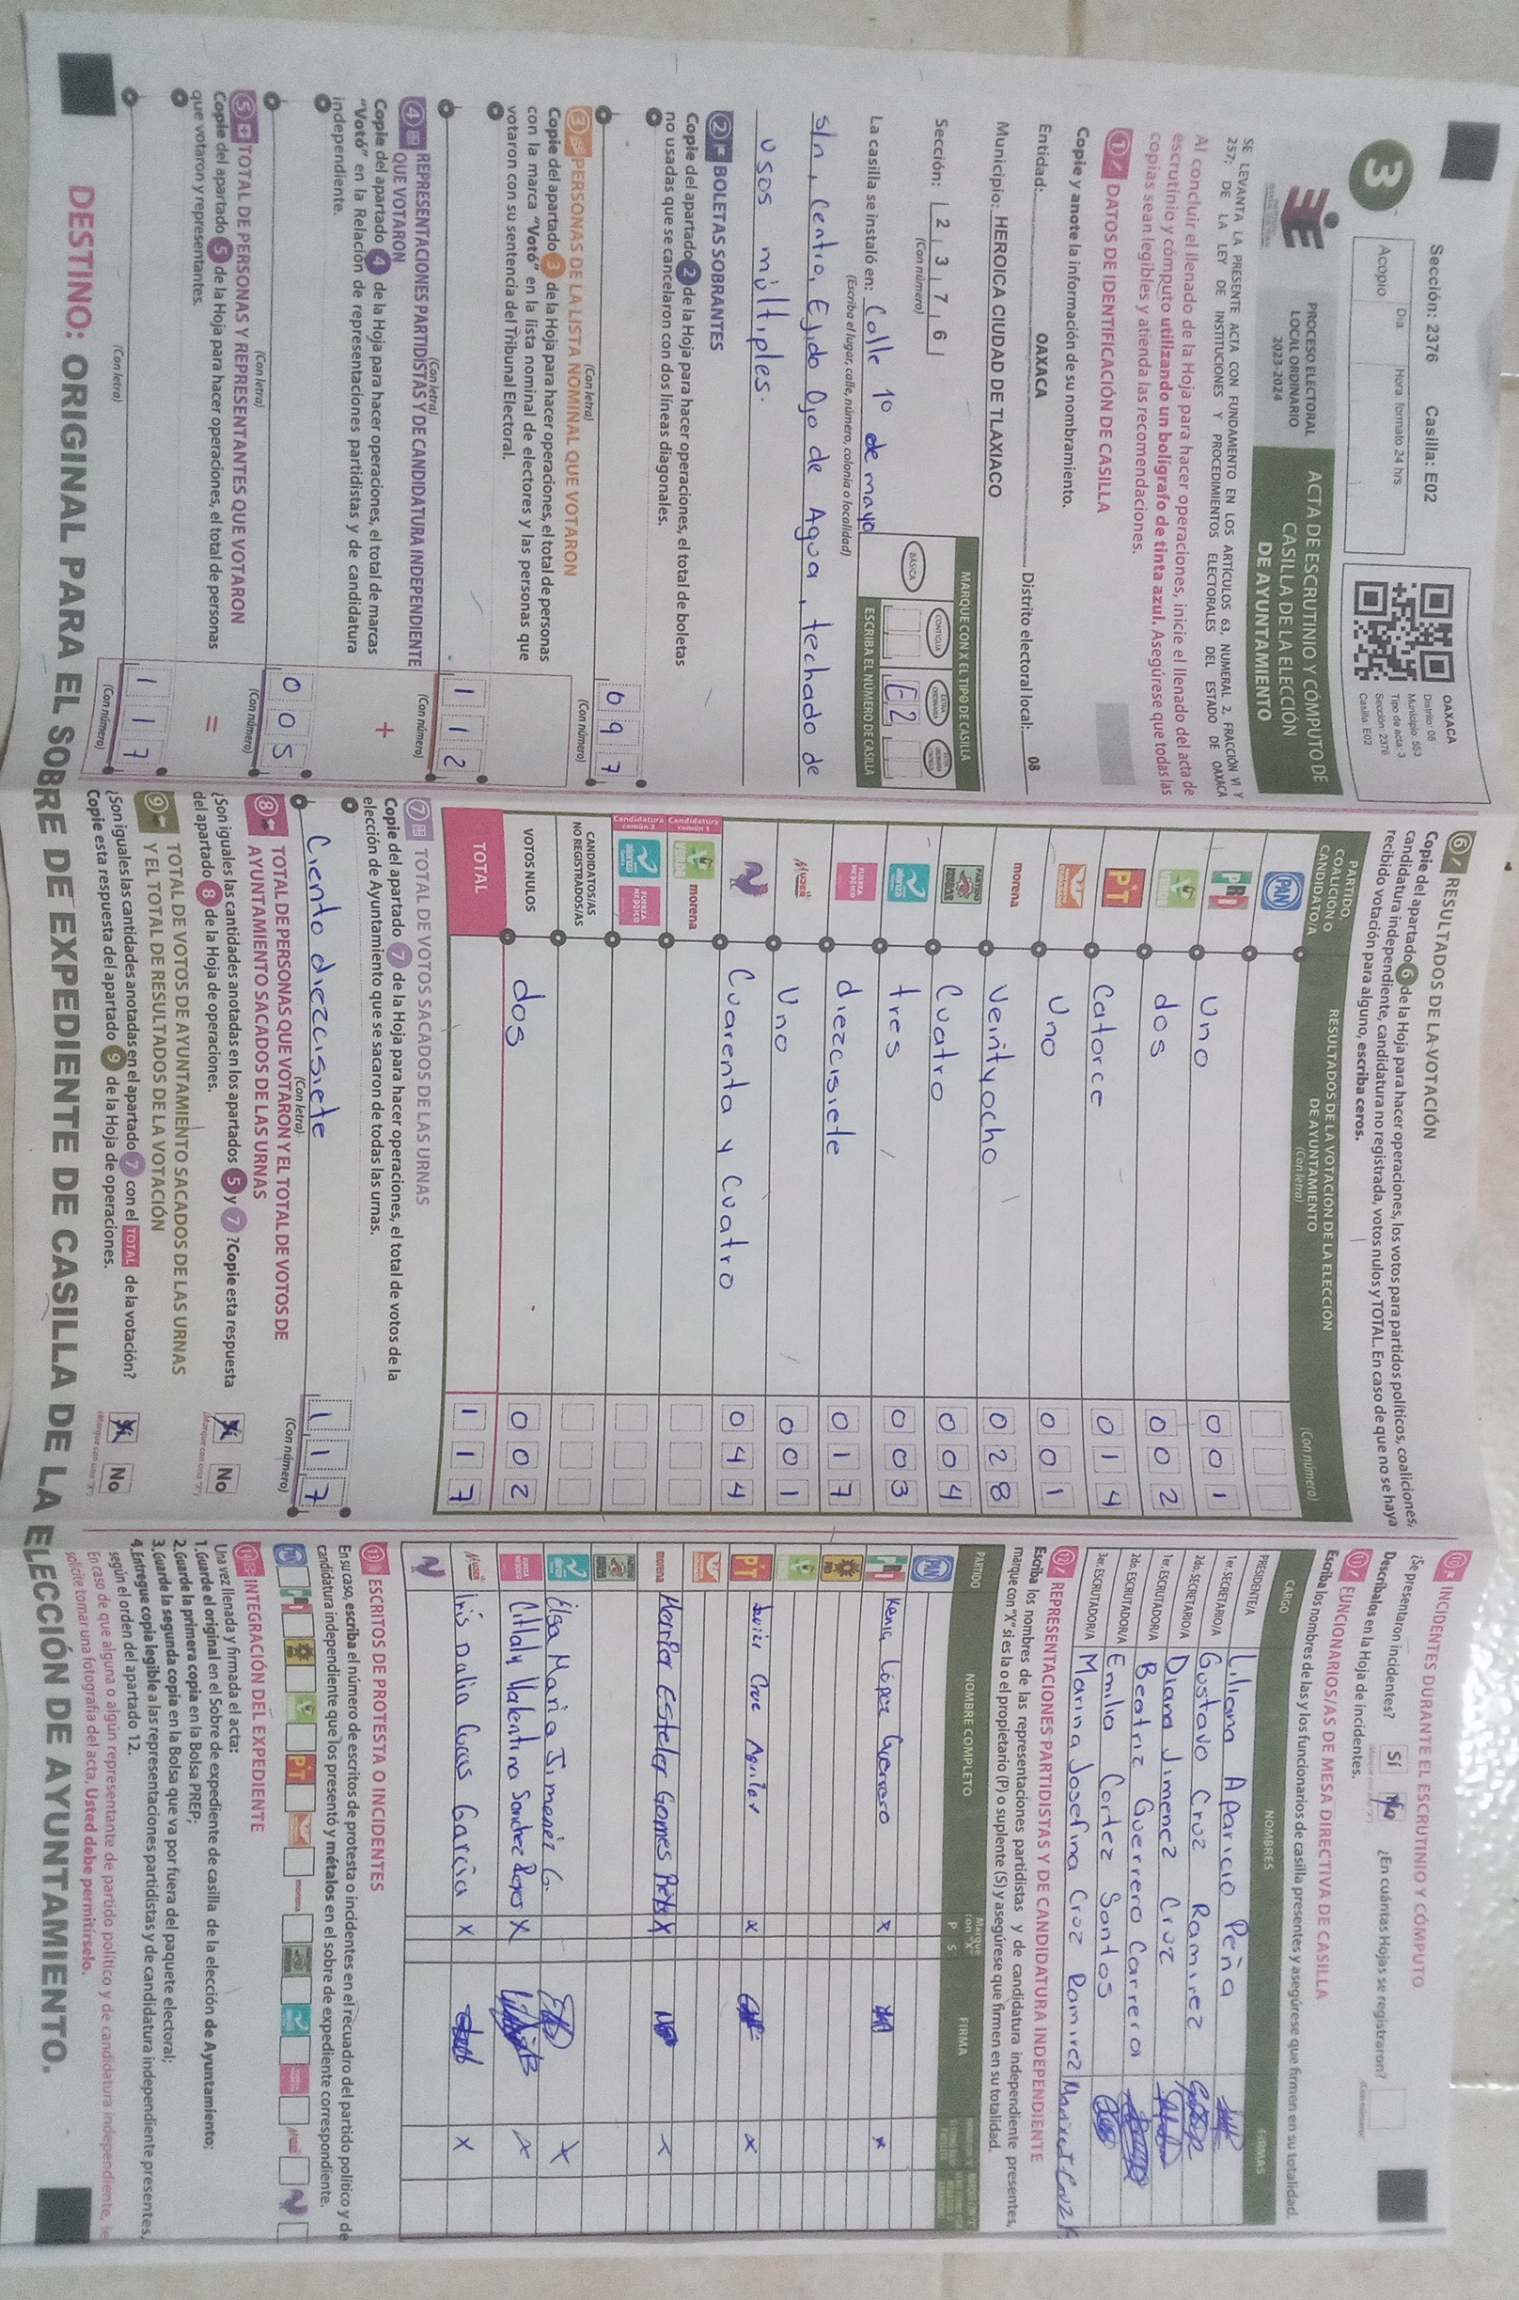 Sección: 2376 Casilla: E02
Día Hora: formato 24 hrs.
Acopio
3
OAXACA
Distrito: 08
Municipio: 553
Tipo de acta: 3
Sección: 2376
Casilla: E02
PROCESO ELECTORAL
LOCAL ORDINARIO
2023-2024
ACTA DE ESCRUTINIO Y CÓMPUTO DE
CASILLA DE LA ELECCIÓN
DE AYUNTAMIENTO
SE LEVANTA LA PRESENTE ACTA CON FUNDAMENTO EN LOS ARTÍCULOS 63, NUMERAL 2, FRACCIÓN VI Y
257; DE LA LEY DE INSTITUCIONES Y PROCEDIMIENTOS ELECTORALES DEL ESTADO DE OAXACA
Al concluir el llenado de la Hoja para hacer operaciones, inicie el llenado del acta de
escrutinio y cómputo utilizando un bolígrafo de tinta azul. Asegúrese que todas las
copias sean legibles y atienda las recomendaciones.
1 DATOS DE IDENTIFICACIÓN DE CASILLA
Copie y anote la información de su nombramiento.
Entidad: OAXACA Distrito electoral local: 08
Municipio: HEROICA CIUDAD DE TLAXIACO
Sección: 2 3 7 6
(Con número)
MARQUE CON X EL TIPO DE CASILLA
BÁSICA CONTIGUA
E 2
ESCRIBA EL NÚMERO DE CASILLA
La casilla se instaló en: Calle 1º de mayo
(Escriba el lugar, calle, número, colonia o localidad)
s/n, Centro, Ejido Ojo de Agua, techado de
usos múltiples.
2 BOLETAS SOBRANTES
Copie del apartado 2 de la Hoja para hacer operaciones, el total de boletas
no usadas que se cancelaron con dos líneas diagonales.
6 9 7
(Con letra) (Con número)
3 PERSONAS DE LA LISTA NOMINAL QUE VOTARON
Copie del apartado 3 de la Hoja para hacer operaciones, el total de personas
con la marca "Votó" en la lista nominal de electores y las personas que
votaron con su sentencia del Tribunal Electoral.
1 1 2
(Con letra) (Con número)
4 REPRESENTACIONES PARTIDISTAS Y DE CANDIDATURA INDEPENDIENTE
QUE VOTARON
Copie del apartado 4 de la Hoja para hacer operaciones, el total de marcas
"Votó" en la Relación de representaciones partidistas y de candidatura
independiente.
+
0 0 5
(Con letra) (Con número)
5 TOTAL DE PERSONAS Y REPRESENTANTES QUE VOTARON
Copie del apartado 5 de la Hoja para hacer operaciones, el total de personas
que votaron y representantes.
=
1 1 7
(Con letra) (Con número)
6 RESULTADOS DE LA VOTACIÓN
Copie del apartado 6 de la Hoja para hacer operaciones, los votos para partidos políticos, coaliciones,
candidatura independiente, candidatura no registrada, votos nulos y TOTAL. En caso de que no se haya
recibido votación para alguno, escriba ceros.
PARTIDO,
COALICIÓN O
CANDIDATO/A
RESULTADOS DE LA VOTACIÓN DE LA ELECCIÓN
DE AYUNTAMIENTO
(Con letra) (Con número)
PAN
PRI Uno 0 0 1
VERDE dos 0 0 2
PT Catorce 0 1 4
Uno 0 0 1
morena Veintyocho 0 2 8
Cuatro 0 0 4
nueva alianza tres 0 0 3
FUERZA MÉXICO diezcisiete 0 1 7
MUJER Uno 0 0 1
Cuarenta y Cuatro 0 4 4
Candidatura común 1 VERDE morena
Candidatura común 2 nueva alianza FUERZA MÉXICO
CANDIDATOS/AS
NO REGISTRADOS/AS
VOTOS NULOS dos 0 0 2
TOTAL 1 1 7
7 TOTAL DE VOTOS SACADOS DE LAS URNAS
Copie del apartado 7 de la Hoja para hacer operaciones, el total de votos de la
elección de Ayuntamiento que se sacaron de todas las urnas.
Ciento diezcisiete 1 1 7
(Con letra) (Con número)
8 TOTAL DE PERSONAS QUE VOTARON Y EL TOTAL DE VOTOS DE
AYUNTAMIENTO SACADOS DE LAS URNAS
¿Son iguales las cantidades anotadas en los apartados 5 y 7 ?Copie esta respuesta
del apartado 8 de la Hoja de operaciones.
Sí No
9 TOTAL DE VOTOS DE AYUNTAMIENTO SACADOS DE LAS URNAS
Y EL TOTAL DE RESULTADOS DE LA VOTACIÓN
¿Son iguales las cantidades anotadas en el apartado 7 con el TOTAL de la votación?
Copie esta respuesta del apartado 9 de la Hoja de operaciones.
Sí No
10 INCIDENTES DURANTE EL ESCRUTINIO Y CÓMPUTO
¿Se presentaron incidentes? Sí No ¿En cuántas Hojas se registraron?
Descríbalos en la Hoja de incidentes.
11 FUNCIONARIOS/AS DE MESA DIRECTIVA DE CASILLA
Escriba los nombres de las y los funcionarios de casilla presentes y asegúrese que firmen en su totalidad.
CARGO NOMBRES FIRMAS
PRESIDENTE/A Liliana Aparicio Peña
1er. SECRETARIO/A Gustavo Cruz Ramirez
2do. SECRETARIO/A Diana Jimenez Cruz
1er. ESCRUTADOR/A Beatriz Guerrero Carrera
2do. ESCRUTADOR/A Emilia Cortez Santos
3er. ESCRUTADOR/A Marina Josefina Cruz Ramirez
12 REPRESENTACIONES PARTIDISTAS Y DE CANDIDATURA INDEPENDIENTE
Escriba los nombres de las representaciones partidistas y de candidatura independiente presentes,
marque con "X" si es la o el propietario (P) o suplente (S) y asegúrese que firmen en su totalidad.
PARTIDO NOMBRE COMPLETO Marque con "X" P S FIRMA
PAN
PRI Kenia López Guerrero x x
PRD
VERDE
PT Javier Cruz Aguilar x x
morena María Esteler Gomes x x
nueva alianza Elsa Maria Jimenez G. x
FUERZA MÉXICO Citlaly Valentina Sanchez Reyes x x
MUJER Inis Dalia Cruas García x x
13 ESCRITOS DE PROTESTA O INCIDENTES
En su caso, escriba el número de escritos de protesta o incidentes en el recuadro del partido político y de
candidatura independiente que los presentó y métalos en el sobre de expediente correspondiente.
14 INTEGRACIÓN DEL EXPEDIENTE
Una vez llenada y firmada el acta:
1.Guarde el original en el Sobre de expediente de casilla de la elección de Ayuntamiento;
2.Guarde la primera copia en la Bolsa PREP;
3.Guarde la segunda copia en la Bolsa que va por fuera del paquete electoral;
4.Entregue copia legible a las representaciones partidistas y de candidatura independiente presentes,
según el orden del apartado 12.
En caso de que alguna o algún representante de partido político y de candidatura independiente, le
solicite tomar una fotografía del acta, Usted debe permitírselo.
DESTINO: ORIGINAL PARA EL SOBRE DE EXPEDIENTE DE CASILLA DE LA ELECCIÓN DE AYUNTAMIENTO.